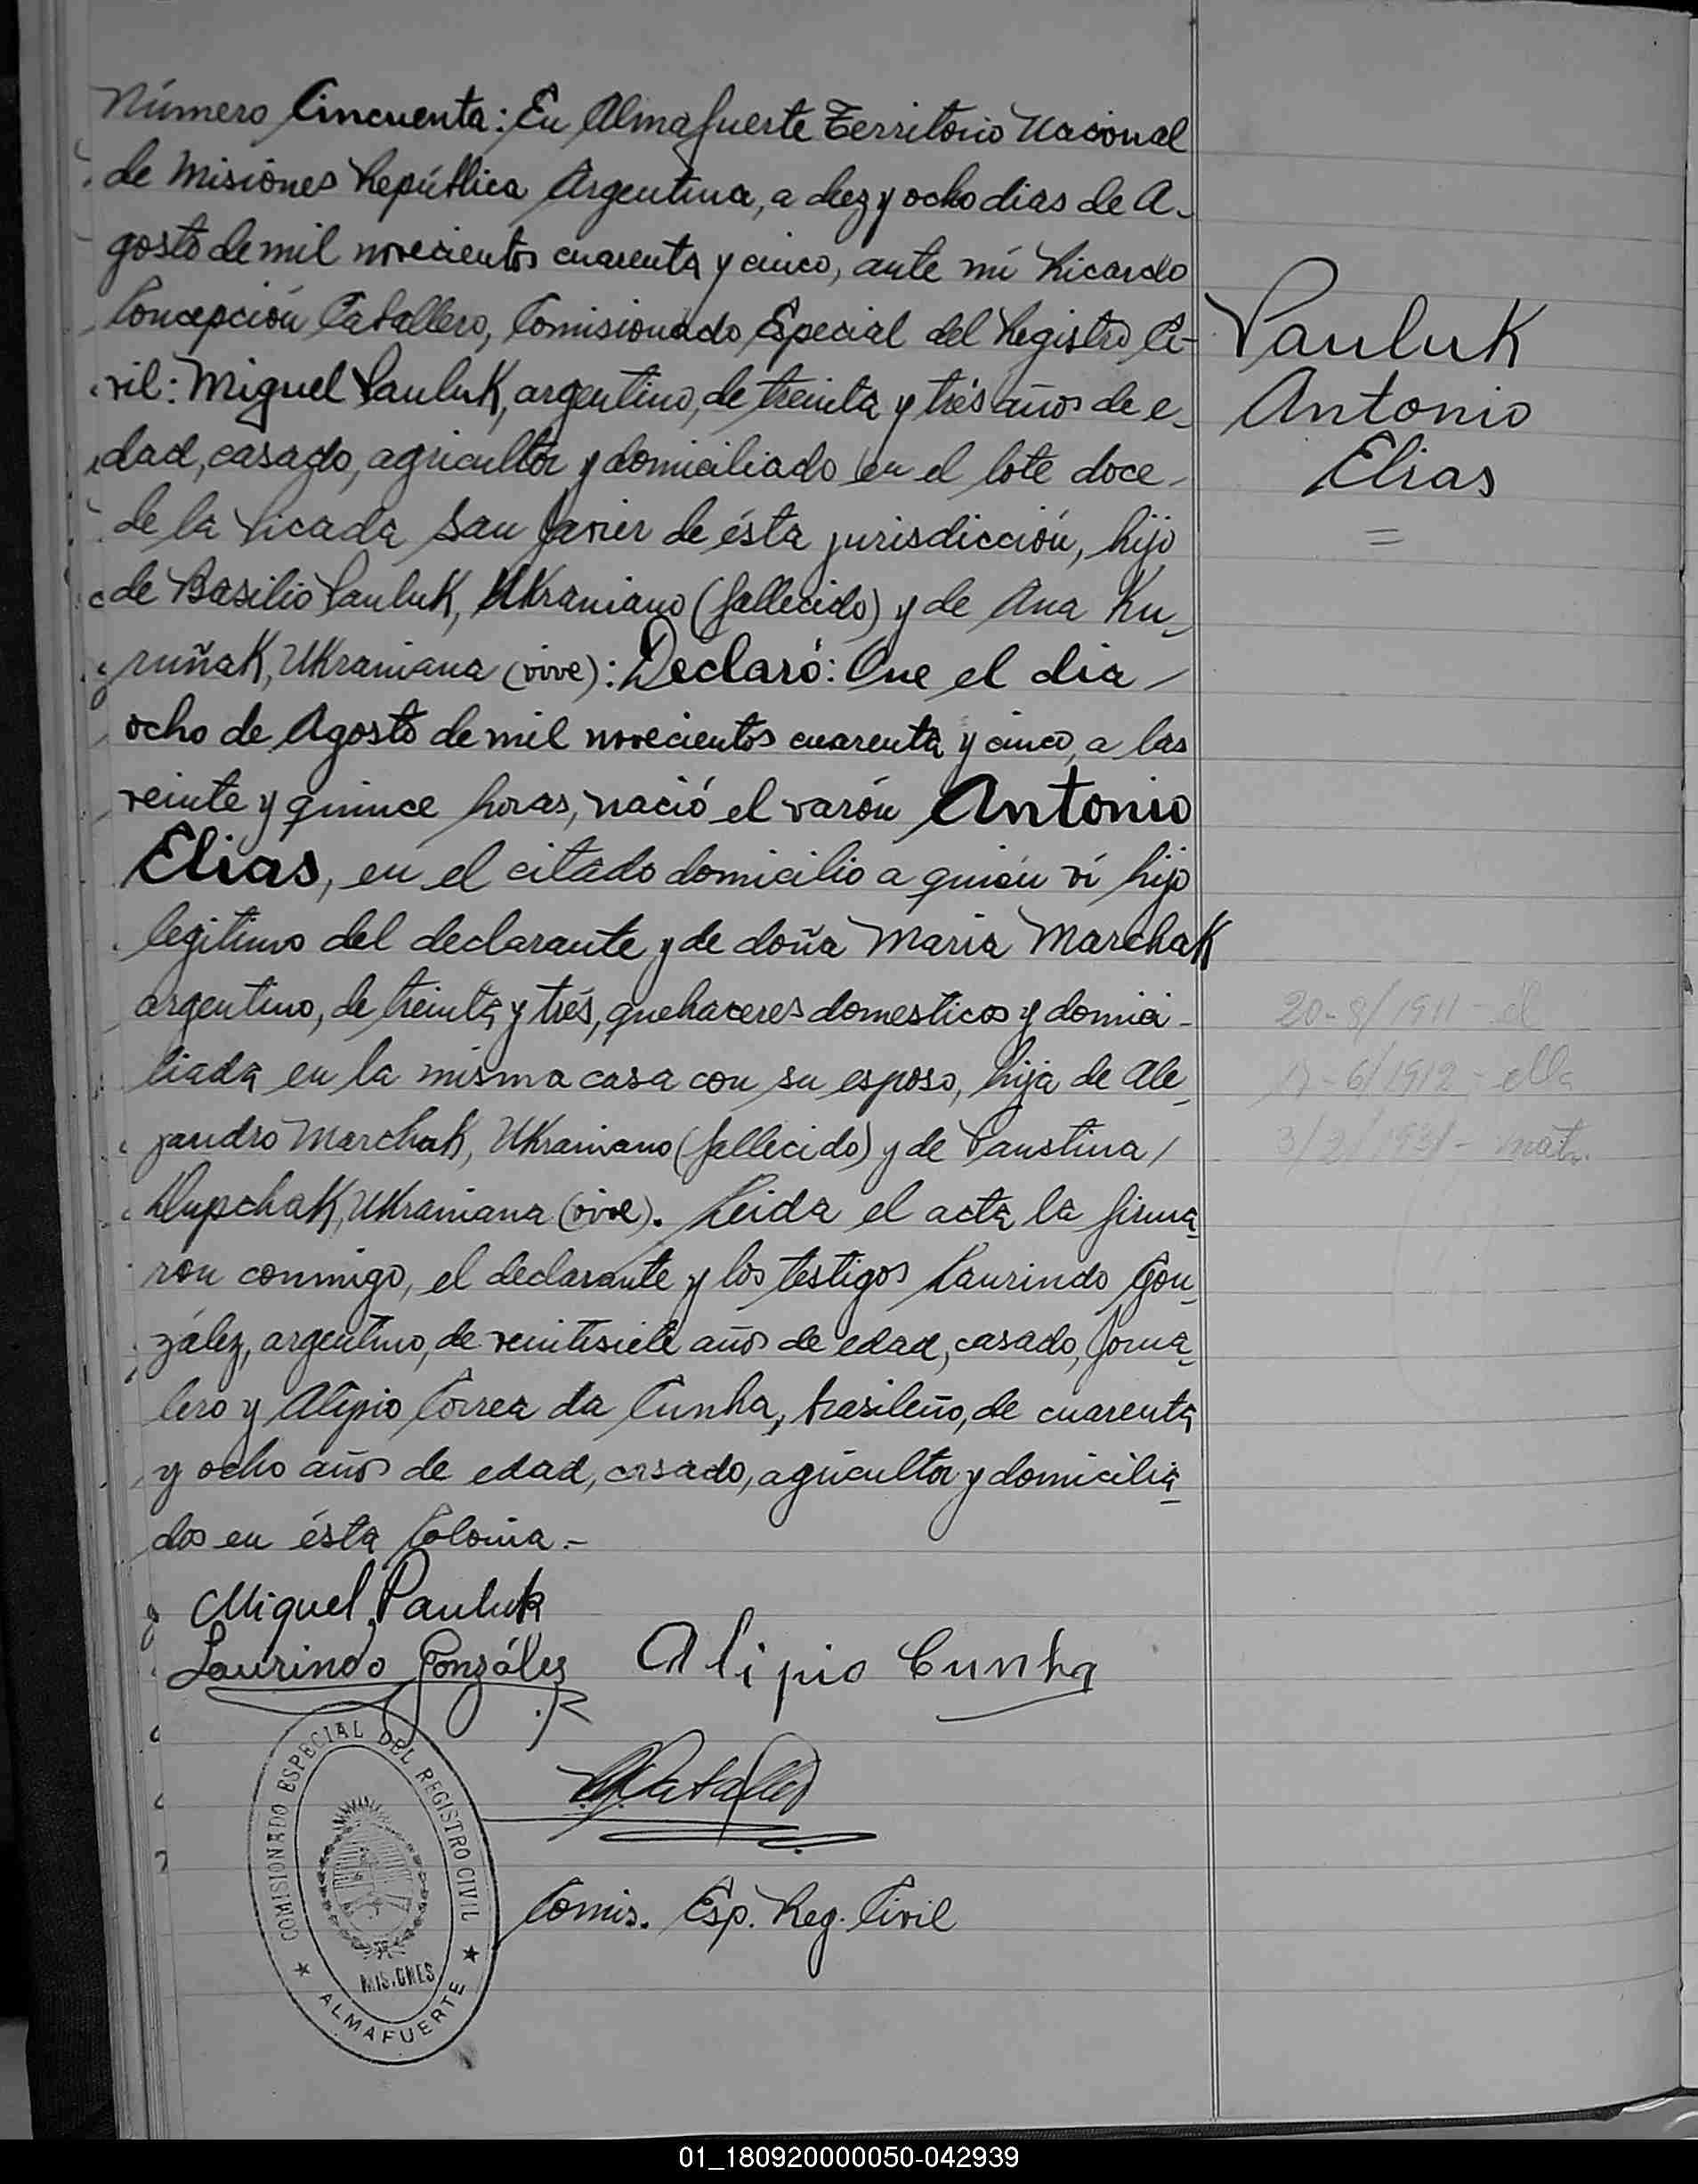 Número Cincuenta: En Almafuerte Territorio Nacional
de Misiones República Argentina, a diez y ocho dias de A-
gosto de mil novecientos cuarenta y cinco, ante mí Ricardo
Concepción Caballero, Comisionado Especial del Registro Ci-
vil: Miguel Pauluk, argentino, de treinta y trés años de e-
dad, casado, agricultor y domiciliado en el lote doce
de la Picada San Javier de ésta jurisdicción, hijo
de Basilio Pauluk, Ukraniano (fallecido) y de Ana Ku-
ruñak, Ukraniana (vive): Declaró: Que el dia
ocho de Agosto de mil novecientos cuarenta y cinco, a las
veinte y quince horas, nació el varón Antonio
Elias, en el citado domicilio a quién ví hijo
legitimo del declarante y de doña Maria Marchak
argentino, de treinta y trés, quehaceres domesticos y domici-
liada en la misma casa con su esposo, hija de Ale-
jandro Marchak, Ukraniano (fallecido) y de Paustina
Ukraniana (vive). Leida el acta la firma-
ron conmigo, el declarante y los testigos Laurindo Gon-
zález, argentino, de veintisiete años de edad, casado, Jorna-
lero y Alipio Correa da Cunha, brasileño, de cuarenta
y ocho años de edad, casado, agricultor y domicilia-
dos en ésta Colonia.-
Pauluk
Antonio
Elias
20-8/1911 - él
17-6/1912 - ella
3/2/1931 - matr.
Miguel Pauluk
Laurindo Gonzáles
Alipio Cunha
RCCaballero
Comis. Esp. Reg. Civil
COMISIONADO ESPECIAL DEL REGISTRO CIVIL
MISIONES
★ ALMAFUERTE ★
01_180920000050-042939